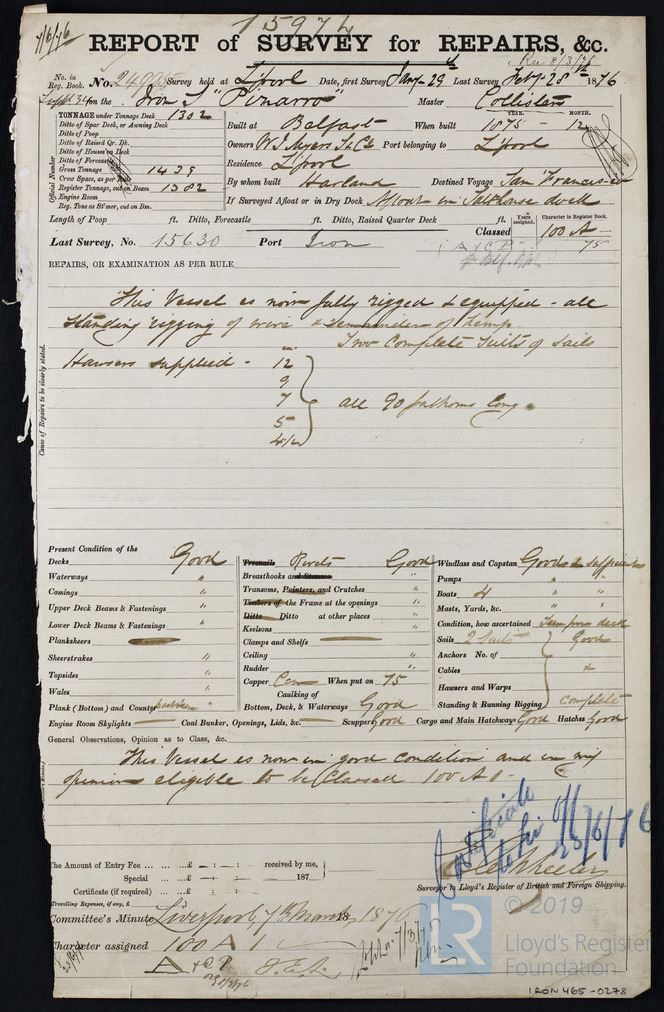 15974
7/6/76
REPORT of SURVEY for REPAIRS, &c.
Rec 8/3/76
No. in Reg. Book.
No. 24005 Survey held at L'pool Date, first Survey Jany 29 Last Survey Feby 28th 1876
on the Iron S "Pizarro" Master Collister
TONNAGE under Tonnage Deck 1302
Ditto of Spar Deck, or Awning Deck
Ditto of Poop
Ditto of Raised Qr. Dk.
Ditto of Houses on Deck
Ditto of Forecastle
Gross Tonnage 1439
Crew Space, as per Rule
Register Tonnage, cut on Beam 1382
Engine Room
Reg. Tons as St'mer, cut on Bm.
Official Number
Built at Belfast When built YEAR. 1875 MONTH. 12
Owners W J Myers Son & Co Port belonging to L'pool
Residence L'pool
By whom built Harland Destined Voyage San Francisco
If Surveyed Afloat or in Dry Dock Afloat in Salthouse dock
Length of Poop ft. Ditto, Forecastle ft. Ditto, Raised Quarter Deck ft.
Years assigned. Character in Register Book.
Classed 100 A
75
Last Survey, No. 15630 Port Iron
A & C P
REPAIRS, OR EXAMINATION AS PER RULE
Cause of Repairs to be clearly stated.
This Vessel is now fully rigged & equipped - all
Standing rigging of wire & remainder of hemp.
Two Complete suits of sails
Hawsers supplied - 12
9
7 all 90 fathoms long.
5
4½
Present Condition of the
Decks Good
Waterways "
Comings "
Upper Deck Beams & Fastenings "
Lower Deck Beams & Fastenings "
Planksheers
Sheerstrakes "
Topsides "
Wales "
Plank (Bottom) and Counter "
Treenails Rivets Good
Breasthooks and Stemson "
Transoms, Pointers, and Crutches "
Timbers of the Frame at the openings "
Ditto Ditto at other places "
Keelsons "
Clamps and Shelfs
Ceiling "
Rudder "
Copper Cem When put on 75
Caulking of
Bottom, Deck, & Waterways Good
Windlass and Capstan Good & sufficient
Pumps " "
Boats 4 " "
Masts, Yards, &c. " "
Condition, how ascertained from deck
Sails 2 Suits Good
Anchors No. of
Cables &
Hawsers and Warps
Standing & Running Rigging Complete
Engine Room Skylights Coal Bunker, Openings, Lids, &c. Scuppers Good Cargo and Main Hatchways Good Hatches Good
General Observations, Opinion as to Class, &c.
This Vessel is now in good condition and in my
opinion eligible to be Classed 100 A 1 -
Certificate
25/6/76
Wheeler
Surveyor to Lloyd's Register of British and Foreign Shipping.
The Amount of Entry Fee ... ... ...£ - : - : received by me,
Special ... ... ...£ - : - : 187
Certificate (if required) ... ...£ - : - :
Travelling Expenses, if any, £
Committee's Minute Liverpool, 7th March 18 1876
Character assigned 100 A 1
A & C P
© 2019
LR
Lloyd's Register
Foundation
IRON 465-0278